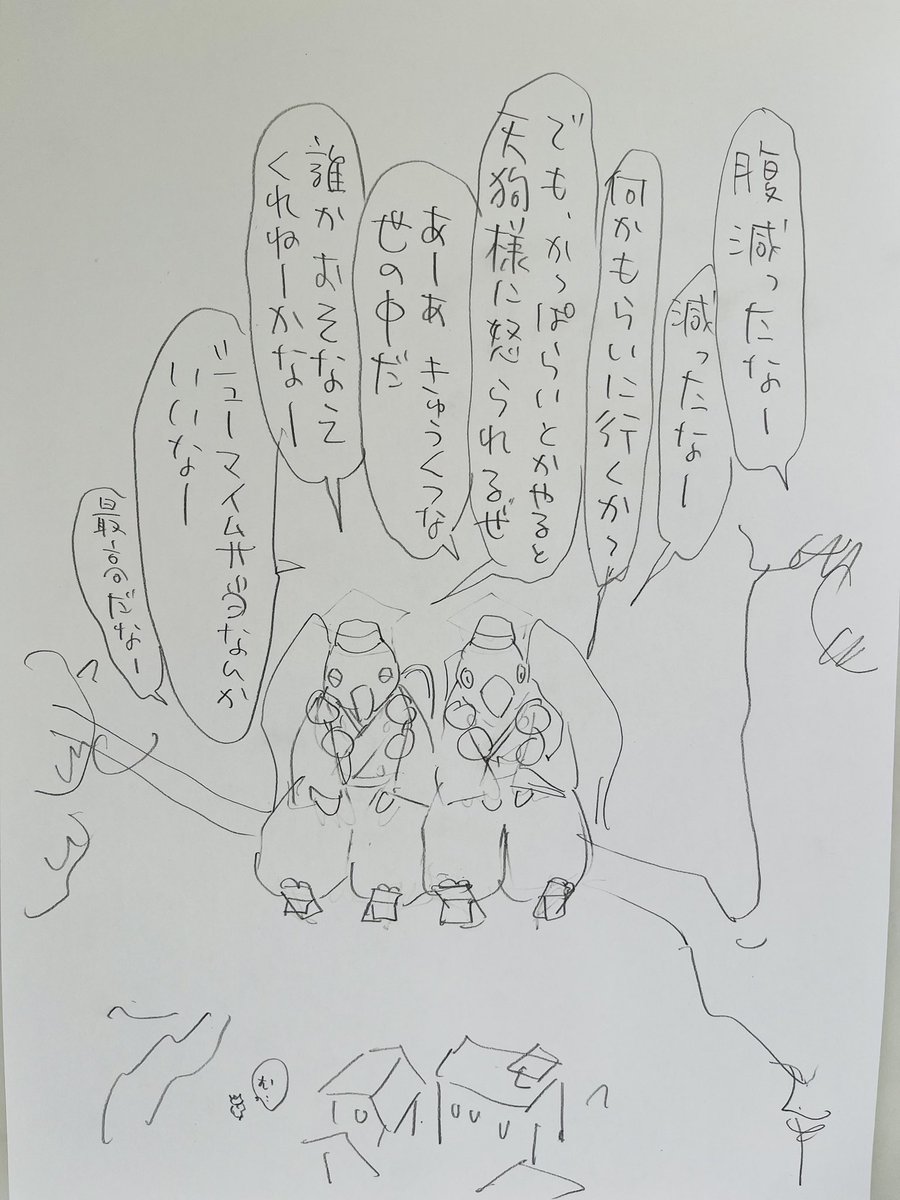 腹減ったなー
減ったなー
何かもらいに行くか〜
でも、かっぱらいとかやると
天狗様に怒られるぜ
あーあ きゅうくつな
世の中だ
誰か おそなえ
くれねーかなー
ニューマイム弁当なんか
いいなー
最高だなー
む…